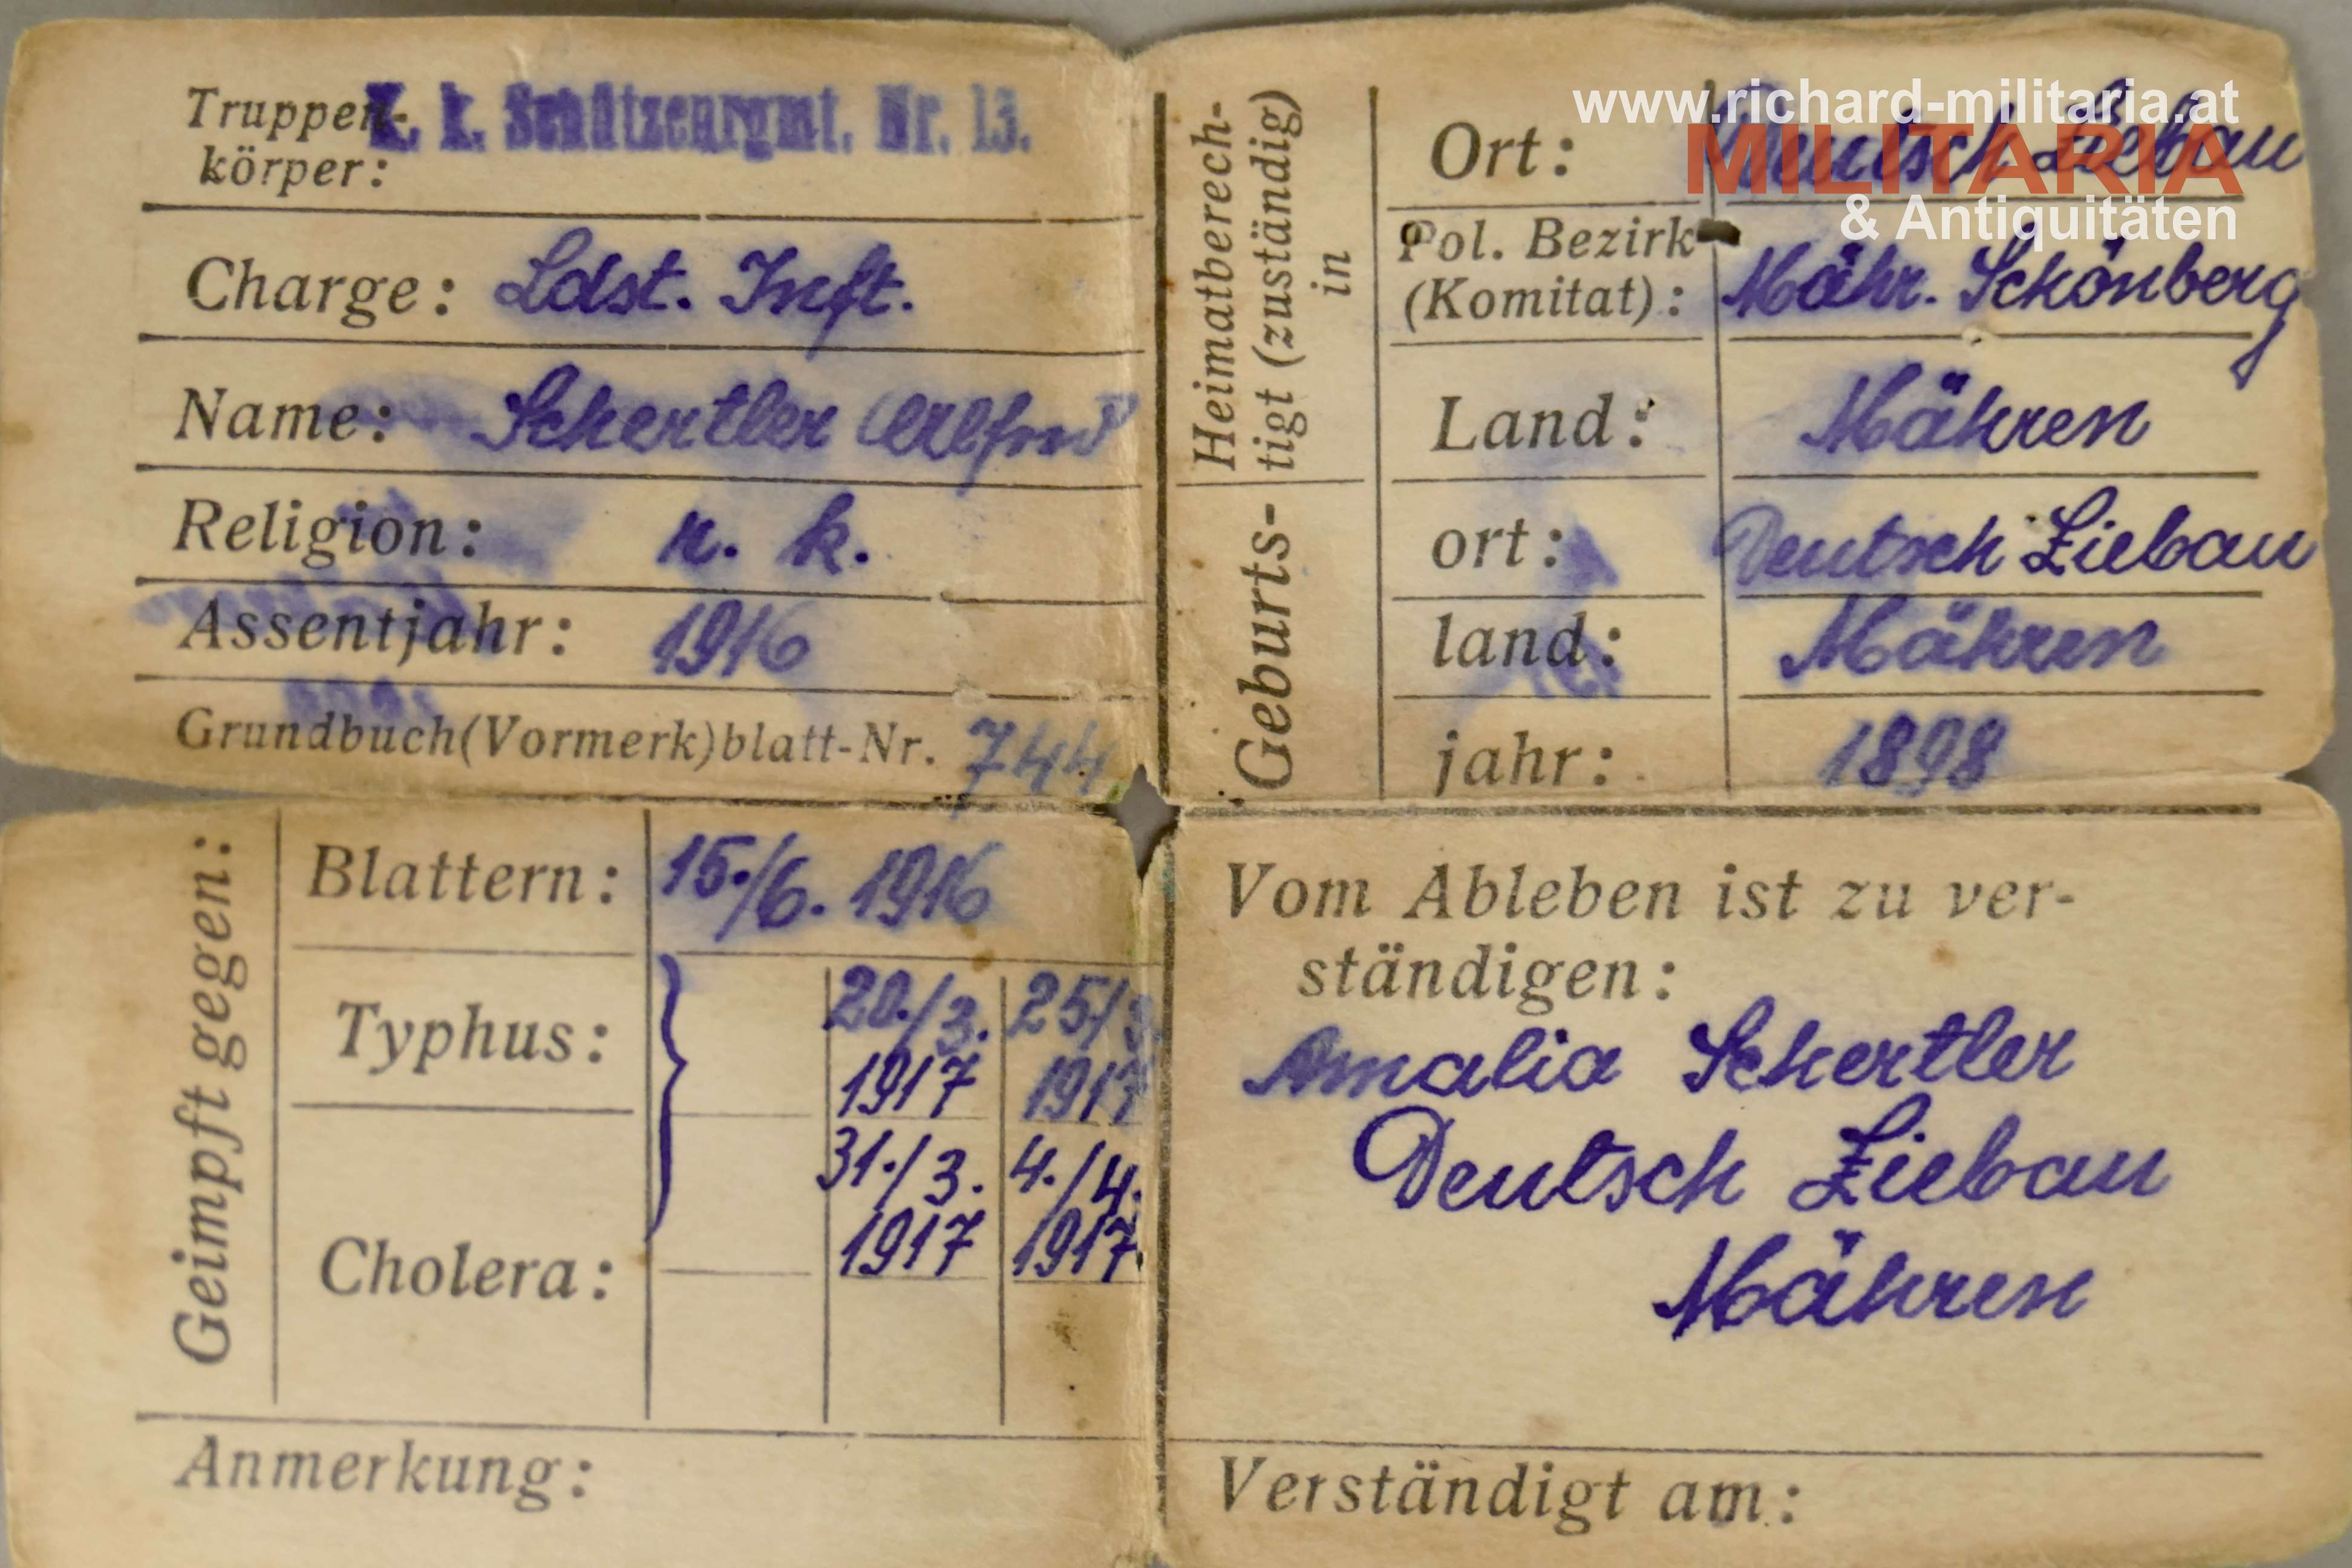 Truppen- K. k. Schützenrgmt. Nr. 13.
körper:
Charge: Ldst. Inft.
Name: Schertler Alfred
Religion: r. k.
Assentjahr: 1916
Grundbuch(Vormerk)blatt-Nr. 744
Heimatberech-
tigt (zuständig)
in
www.richard-militaria.at
MILITARIA
& Antiquitäten
Ort: Deutsch Liebau
Pol. Bezirk
(Komitat): Mähr. Schönberg
Land: Mähren
Geburts-
ort: Deutsch Liebau
land: Mähren
jahr: 1898
Geimpft gegen:
Blattern: 15./6. 1916
Typhus: 20./3. 25/3.
1917 1917
31./3. 4./4.
Cholera: 1917 1917
Anmerkung:
Vom Ableben ist zu ver-
ständigen:
Amalia Schertler
Deutsch Liebau
Mähren
Verständigt am: